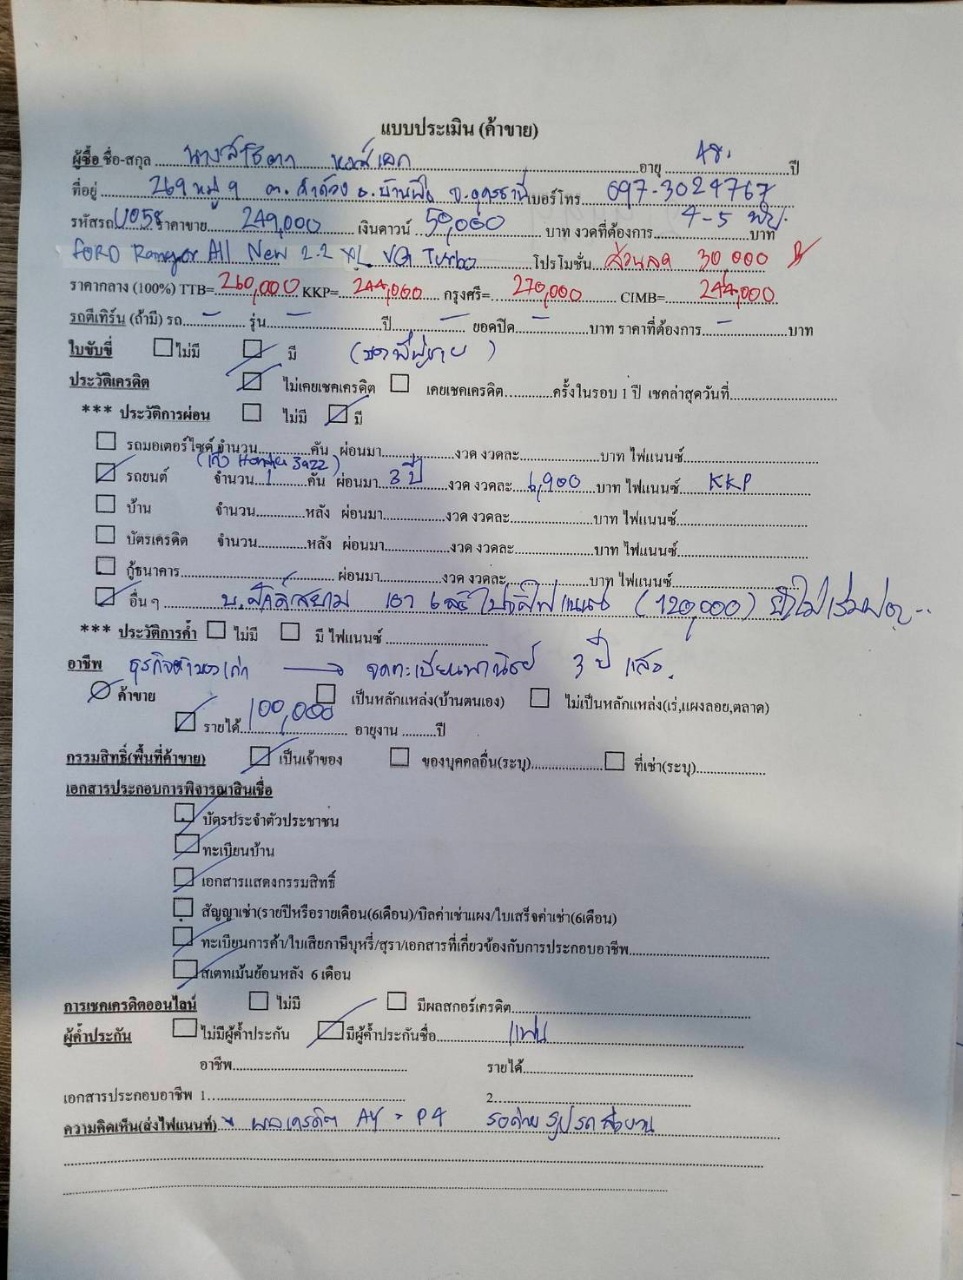 แบบประเมิน (ค้าขาย)
ผู้ซื้อ ชื่อ-สกุล นาง อายุ 48 ปี
ที่อยู่ 269 หมู่ 9 ต. คำด้วง อ. บ้านผือ จ. อุดรธานี เบอร์โทร 097-3024767
รหัสรถ U058 ราคาขาย 249,000 เงินดาวน์ 50,000 บาท งวดที่ต้องการ 4-5 พัน. บาท
FORD Ranger All New 2.2 XL VG Turbo โปรโมชั่น ส่วนลด 30 000
ราคากลาง (100%) TTB= 260,000 KKP= 244,000 กรุงศรี= 270,000 CIMB= 244,000
รถตีเทิร์น (ถ้ามี) รถ - รุ่น - ปี - ยอดปิด - บาท ราคาที่ต้องการ - บาท
ใบขับขี่ ไม่มี มี
ประวัติเครดิต ไม่เคยเชคเครดิต เคยเชคเครดิต ครั้งในรอบ 1 ปี เชคล่าสุดวันที่
*** ประวัติการผ่อน ไม่มี มี
รถมอเตอร์ไซค์ จำนวน คัน ผ่อนมา งวด งวดละ บาท ไฟแนนซ์
(เก๋ง Honda Jazz)
รถยนต์ จำนวน 1 คัน ผ่อนมา 3 ปี งวด งวดละ 6,900 บาท ไฟแนนซ์ KKP
บ้าน จำนวน หลัง ผ่อนมา งวด งวดละ บาท ไฟแนนซ์
บัตรเครดิต จำนวน หลัง ผ่อนมา งวด งวดละ บาท ไฟแนนซ์
กู้ธนาคาร ผ่อนมา งวด งวดละ บาท ไฟแนนซ์
อื่น ๆ บ. ศักดิ์สยาม เอา ไฟแนนซ์ (120,000) ยังไม่เริ่มผ่อน
*** ประวัติการค้ำ ไม่มี มี ไฟแนนซ์
อาชีพ ธุรกิจค้าของเก่า → จดทะเบียนพาณิชย์ 3 ปี แล้ว
ค้าขาย เป็นหลักแหล่ง(บ้านตนเอง) ไม่เป็นหลักแหล่ง(เร่,แผงลอย,ตลาด)
รายได้ 100,000 อายุงาน ปี
กรรมสิทธิ์(พื้นที่ค้าขาย) เป็นเจ้าของ ของบุคคลอื่น(ระบุ) ที่เช่า(ระบุ)
เอกสารประกอบการพิจารณาสินเชื่อ
บัตรประจำตัวประชาชน
ทะเบียนบ้าน
เอกสารแสดงกรรมสิทธิ์
สัญญาเช่า(รายปีหรือรายเดือน(6เดือน)/บิลค่าเช่าแผง/ใบเสร็จค่าเช่า(6เดือน)
ทะเบียนการค้า/ใบเสียภาษีบุหรี่/สุรา/เอกสารที่เกี่ยวข้องกับการประกอบอาชีพ
สเตทเม้นย้อนหลัง 6 เดือน
การเชคเครดิตออนไลน์ ไม่มี มีผลสกอร์เครดิต
ผู้ค้ำประกัน ไม่มีผู้ค้ำประกัน มีผู้ค้ำประกันชื่อ แฟน
อาชีพ รายได้
เอกสารประกอบอาชีพ 1. 2.
ความคิดเห็น(ส่งไฟแนนท์) ผลเครดิต AY = P4 รอถ่ายรูปรถส่งงาน